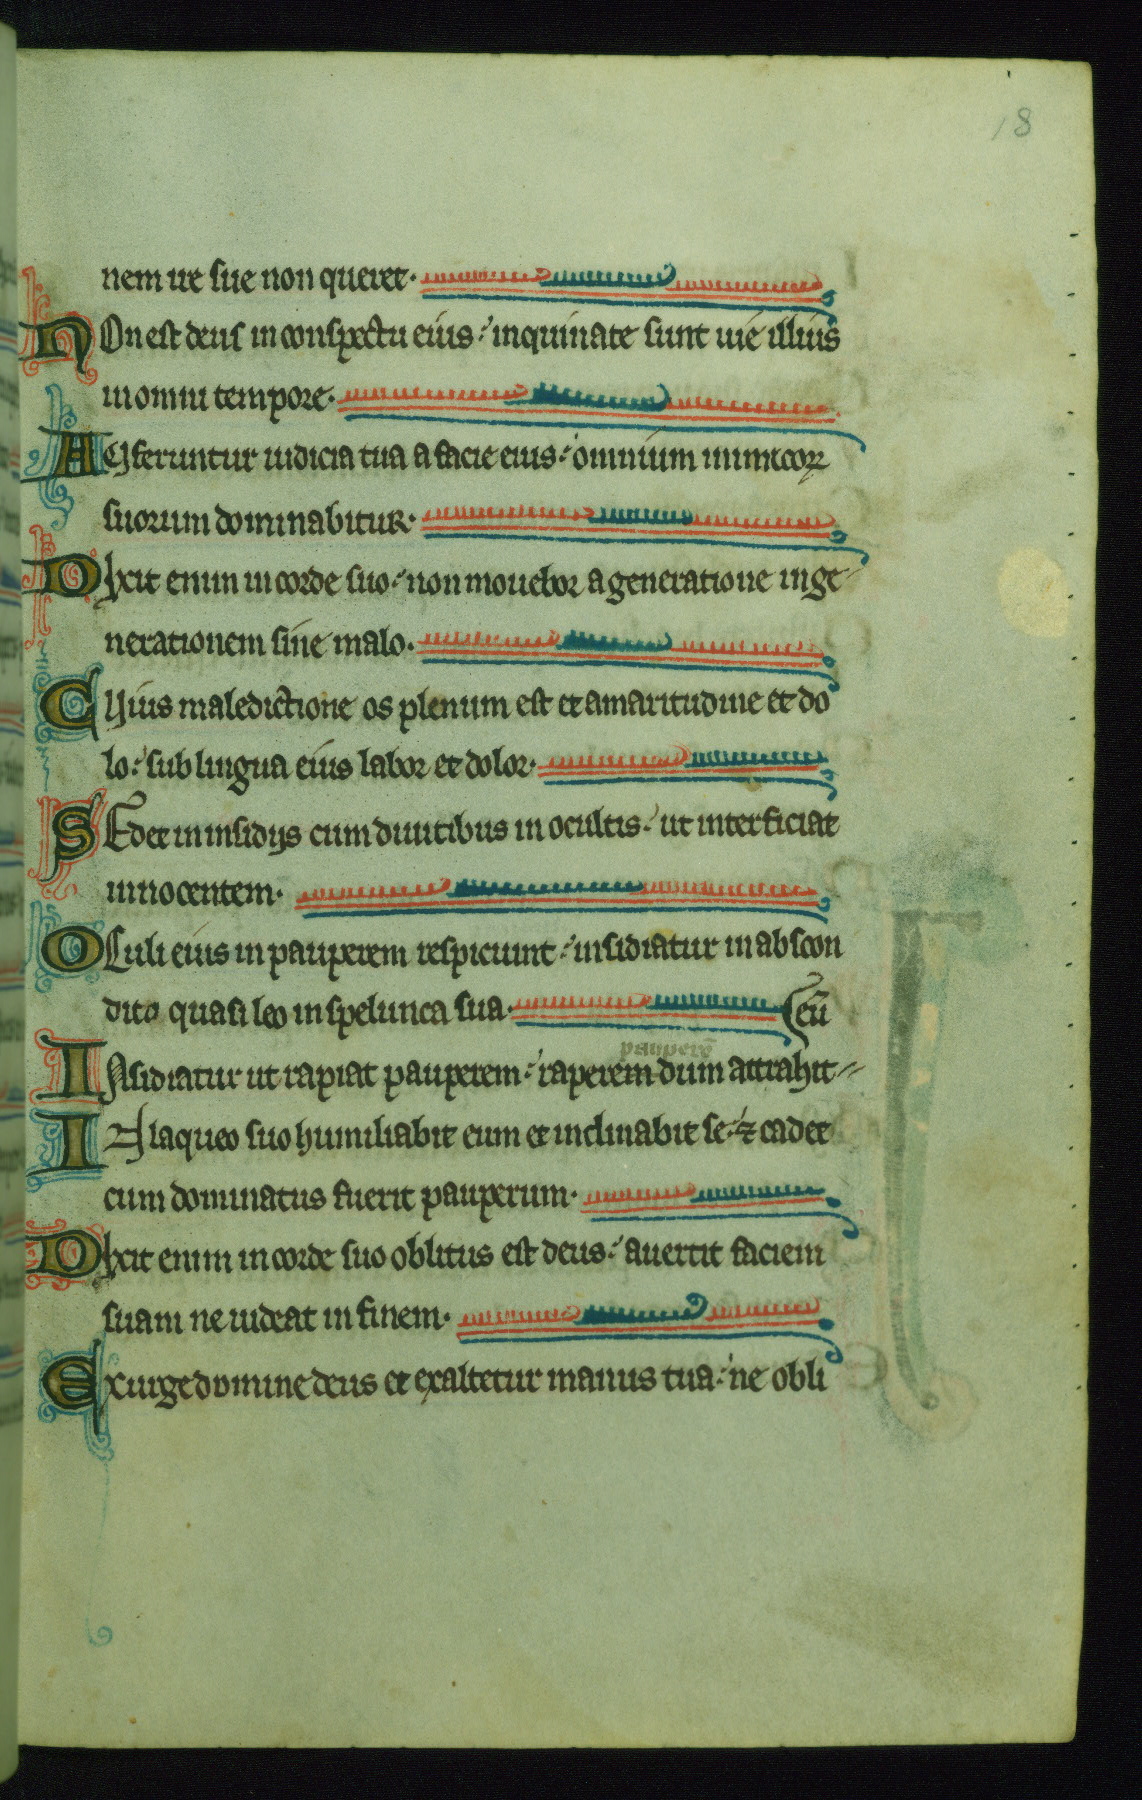 18
nem ire sue non queret.
Non est deus in conspectu eius: inquinate sunt uie illius
in omni tempore.
Auferuntur iudicia tua a facie eius: omnium inimicoꝝ
suorum dominabitur.
Dixit enim in corde suo: non mouebor a generatione in ge-
nerationem sine malo.
Cuius maledictione os plenum est et amaritudine et do
lo: sub lingua eius labor et dolor.
Sedet in insidijs cum diuitibus in ocultis: ut interficiat
innocentem.
Oculi eius in pauperem respicuint: insidiatur in abscon
dito quasi leo in spelunca sua. eū
pauperē
Insidiatur ut rapiat pauperem: raperem dum attrahit
In laqueo suo humiliabit eum et inclinabit se: ⁊ cadet
cum dominatus fuerit pauperum.
Dixit enim in corde suo oblitus est deus: auertit faciem
suam ne uideat in finem.
Exurge domine deus et exaltetur manus tua: ne obli